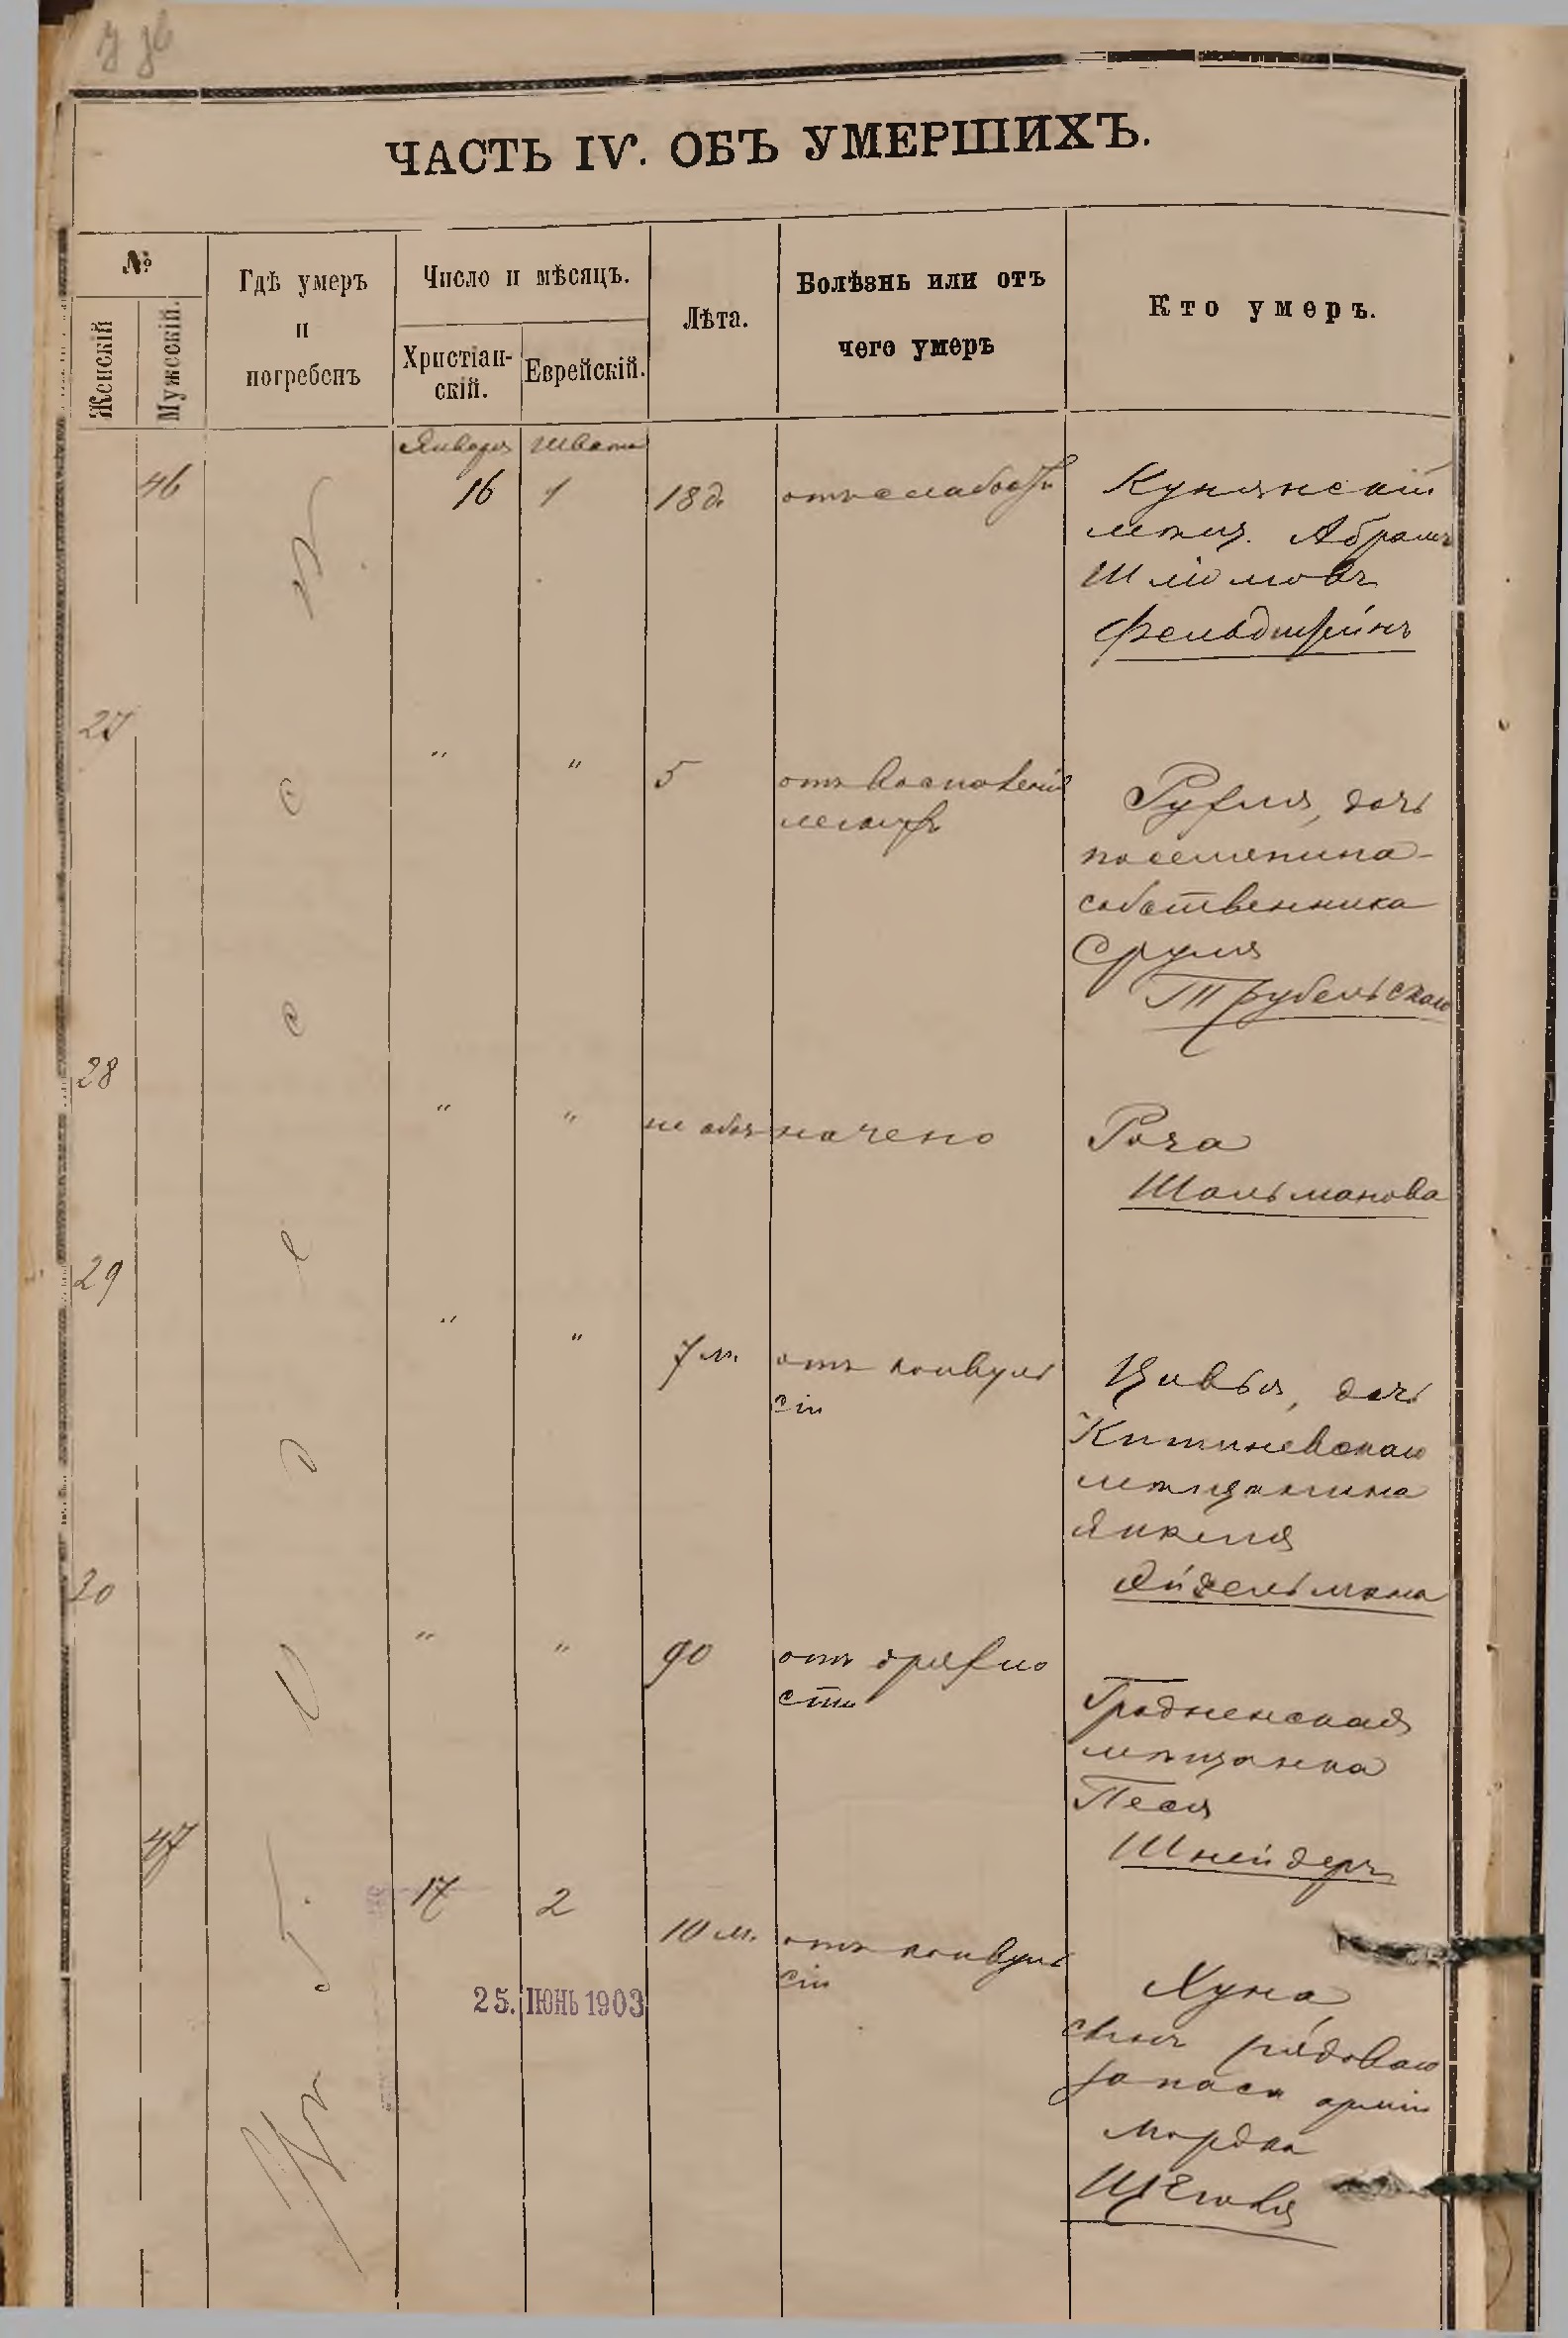 ЧАСТЬ IV. ОБЪ УМЕРШИХЪ.
№
Женскій
Мужескій.
Гдѣ умеръ
и
погребенъ
Число и мѣсяцъ.
Христіан-
скій.
Еврейскій.
Лѣта.
Болѣзнь или отъ
чего умеръ
Кто умеръ.
Января Швата
46 16 1 18 д. отъ слабости
Кунянскій
мѣщ. Абрамъ
Шліомовъ
Фельдштейнъ
27 " " 5 отъ воспаленія
легкихъ
Рухля, дочь
поселянина-
собственника
Сруля
Трубельскаго
28 " " не обозначено
Роза
Шальманова
29 " " 7 м. отъ конвуль
сіи
Цивья, дочь
Кишиневскаго
мѣщанина
Янкеля
Айзельмана
30 " " 90 отъ дряхло
сти
Гродненская
мѣщанка
Песя
Шнейдеръ
47 17 2 10 м. отъ конвуль
сіи
Хуна
сынъ рядоваго
запаса арміи
Мордка
Щеголя
25. ІЮНЬ 1903
Одесса